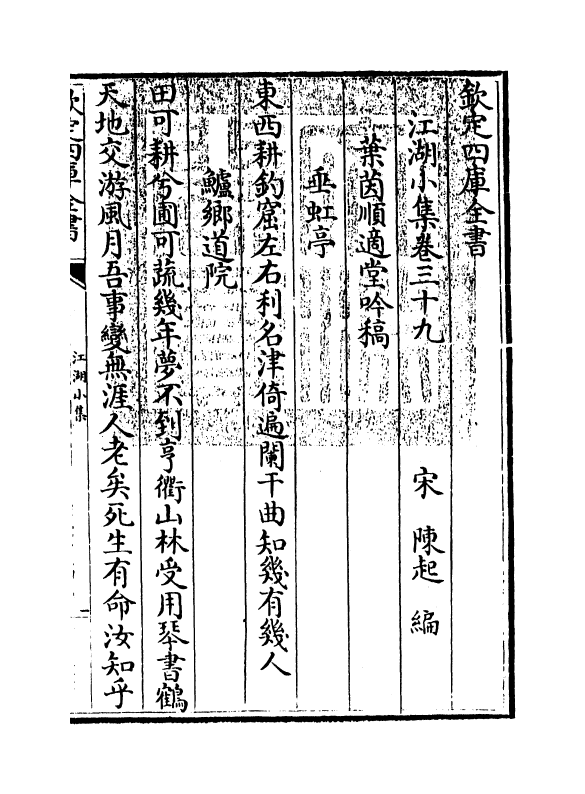 欽定四庫全書
江湖小集卷三十九
宋　陳起　編
葉茵順適堂吟稿
垂虹亭
東西耕釣窟左右利名津倚遍闌干曲知幾有幾人
鱸鄉道院
田可耕兮圃可蔬幾年夢不到亨衢山林受用琴書鶴
天地交游風月吾事變無涯人老矣死生有命汝知乎
欽定四庫全書
江湖小集
一